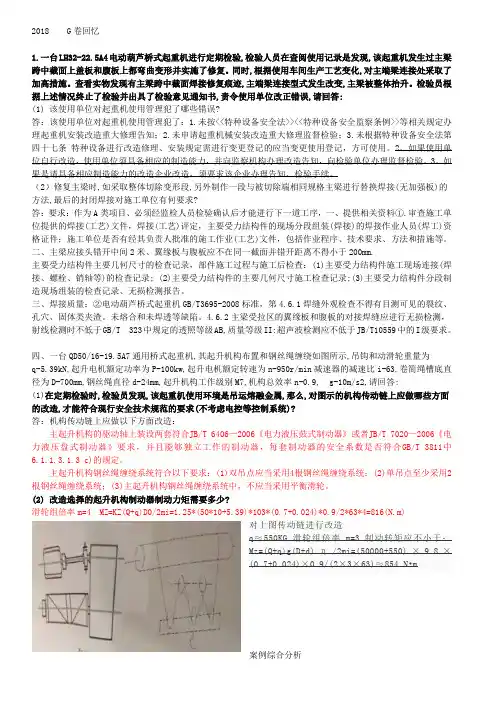 2018 G卷回忆
1.一台LH32-22.5A4电动葫芦桥式起重机进行定期检验,检验人员在查阅使用记录是发现,该起重机发生过主梁
跨中截面上盖板和腹板上都弯曲变形并实施了修复。同时,根据使用车间生产工艺变化,对主端梁连接处采取了
加高措施。查看实物发现有主梁跨中截面焊接修复痕迹,主端梁连接型式发生改变,主梁被整体抬升。检验员根
据上述情况终止了检验并出具了检验意见通知书,责令使用单位改正错误,请回答:
(1) 该使用单位对起重机使用管理犯了哪些错误?
答:该使用单位对起重机使用管理犯了:1.未按<<特种设备安全法>><<特种设备安全监察条例>>等相关规定办
理起重机安装改造重大修理告知;2.未申请起重机械安装改造重大修理监督检验;3.未根据特种设备安全法第
四十七条 特种设备进行改造修理、安装规定需进行变更登记的应当变更使用登记,方可使用。2、如果使用单
位自行改造,使用单位须具备相应的制造能力,并向监察机构办理改造告知,向检验单位办理监督检验。3、如
果是请具备相应制造能力的改造企业改造,须要求该企业办理告知、检验手续。
(2)修复主梁时,如采取整体切除变形段,另外制作一段与被切除端相同规格主梁进行替换焊接(无加强板)的
方法,最后的封闭焊接对施工单位有何要求?
答:要求:作为A类项目、必须经监检人员检验确认后才能进行下一道工序,一、提供相关资料①.审查施工单
位提供的焊接(工艺)文件,焊接(工艺)评定,主要受力结构件的现场分段组装(焊接)的焊接作业人员(焊工)资
格证件;施工单位是否有经其负责人批准的施工作业(工艺)文件,包括作业程序、技术要求、方法和措施等。
二、主梁应接头错开中间2米、翼缘板与腹板应不在同一截面并错开距离不得小于200mm.
主要受力结构件主要几何尺寸的检查记录,部件施工过程与施工后检查:(1)主要受力结构件施工现场连接(焊
接、螺栓、销轴等)的检查记录; (2)主要受力结构件的主要几何尺寸施工检查记录;(3)主要受力结构件分段制
造现场组装的检查记录、无损检测报告。
三、焊接质量:②电动葫芦桥式起重机GB/T3695-2008标准。第4.6.1焊缝外观检查不得有目测可见的裂纹、
孔穴、固体类夹渣、未熔合和未焊透等缺陷。4.6.2主梁受拉区的翼缘板和腹板的对接焊缝应进行无损检测,
射线检测时不低于GB/T 323中规定的透照等级AB,质量等级II:超声波检测应不低于JB/T10559中的I级要求。
四、一台QD50/16-19.5A7通用桥式起重机,其起升机构布置和钢丝绳缠绕如图所示,吊钩和动滑轮重量为
q-5.39kN,起升电机额定功率为P-100kw,起升电机额定转速为n-950r/min减速器的减速比i-63.卷筒绳槽底直
径为D-700mm,钢丝绳直径d-24mm,起升机构工作级别M7,机构总效率n-0.9, g-10m/s2,请回答:
(1)在定期检验时,检验员发现,该起重机使用环境是吊运熔融金属,那么,对图示的机构传动链上应做哪些方面
的改造,才能符合现行安全技术规范的要求(不考虑电控等控制系统)?
答:机构传动链上应做以下方面改造:
主起升机构的驱动轴上装设两套符合JB/T 6406—2006《电力液压鼓式制动器》或者JB/T 7020—2006《电
力液压盘式制动器》要求,并且能够独立工作的制动器,每套制动器的安全系数是否符合GB/T 3811中
6.1.1.3.1.3 c)的规定。
主起升机构钢丝绳缠绕系统符合以下要求:(1)双吊点应当采用4根钢丝绳缠绕系统;(2)单吊点至少采用2
根钢丝绳缠绕系统;(3)主起升机构钢丝绳缠绕系统中,不应当采用平衡滑轮。
(2) 改造选择的起升机构制动器制动力矩需要多少?
滑轮组倍率m=4 MZ=KZ(Q+q)D0/2mi=1.25*(50*10+5.39)*103*(0.7+0.024)*0.9/2*63*4=816(N.m)
对上图传动链进行改造
q≈550KG 滑轮组倍率 m=3 制动转矩应不小于:
Mz=(Q+q)g(D+d) η /2mi=(50000+550) × 9.8 ×
(0.7+0.024)×0.9/(2×3×63)≈854 N•m
案例综合分析